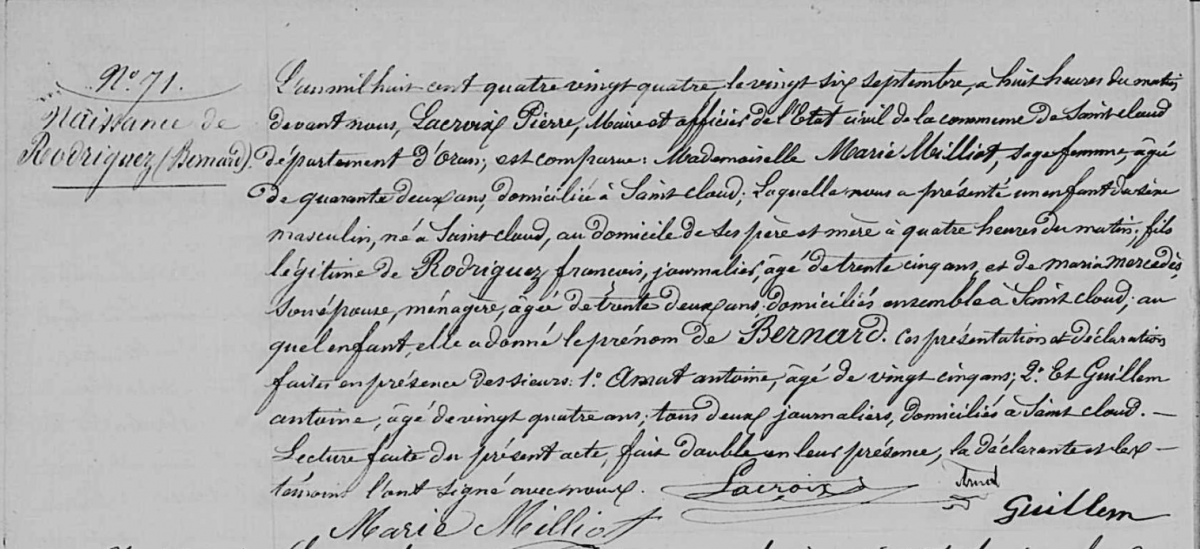 N° 71.
Naissance de
Rodriguez (Bernard).
L'an mil huit cent quatre vingt quatre le vingt six septembre, à huit heures du matin
devant nous, Lacroix Pierre, Maire et officier de l'Etat civil de la commune de Saint cloud
département d'Oran; est comparue: Mademoiselle Marie Milliot, sage femme, âgée
de quarante deux ans, domiciliée à Saint cloud; Laquelle nous a présenté un enfant du sexe
masculin, né à Saint cloud, au domicile de ses père et mère à quatre heures du matin; fils
légitime de Rodriguez francois, journalier, âgé de trente cinq ans, et de maria mercedès,
son épouse, ménagère, âgée de trente deux ans, domiciliés ensemble à Saint cloud; au
quel enfant, elle a donné le prénom de Bernard. Ces présentation et déclaration
faites en présence des sieurs: 1° Amat antoine, âgé de vingt cinq ans; 2° Et Guillem
antoine, âgé de vingt quatre ans; tous deux journaliers, domiciliés à Saint cloud. —
Lecture faite du présent acte, fait double en leur présence, la déclarante et les —
témoins l'ont signé avec nous. Lacroix Amat
Marie Milliot Guillem